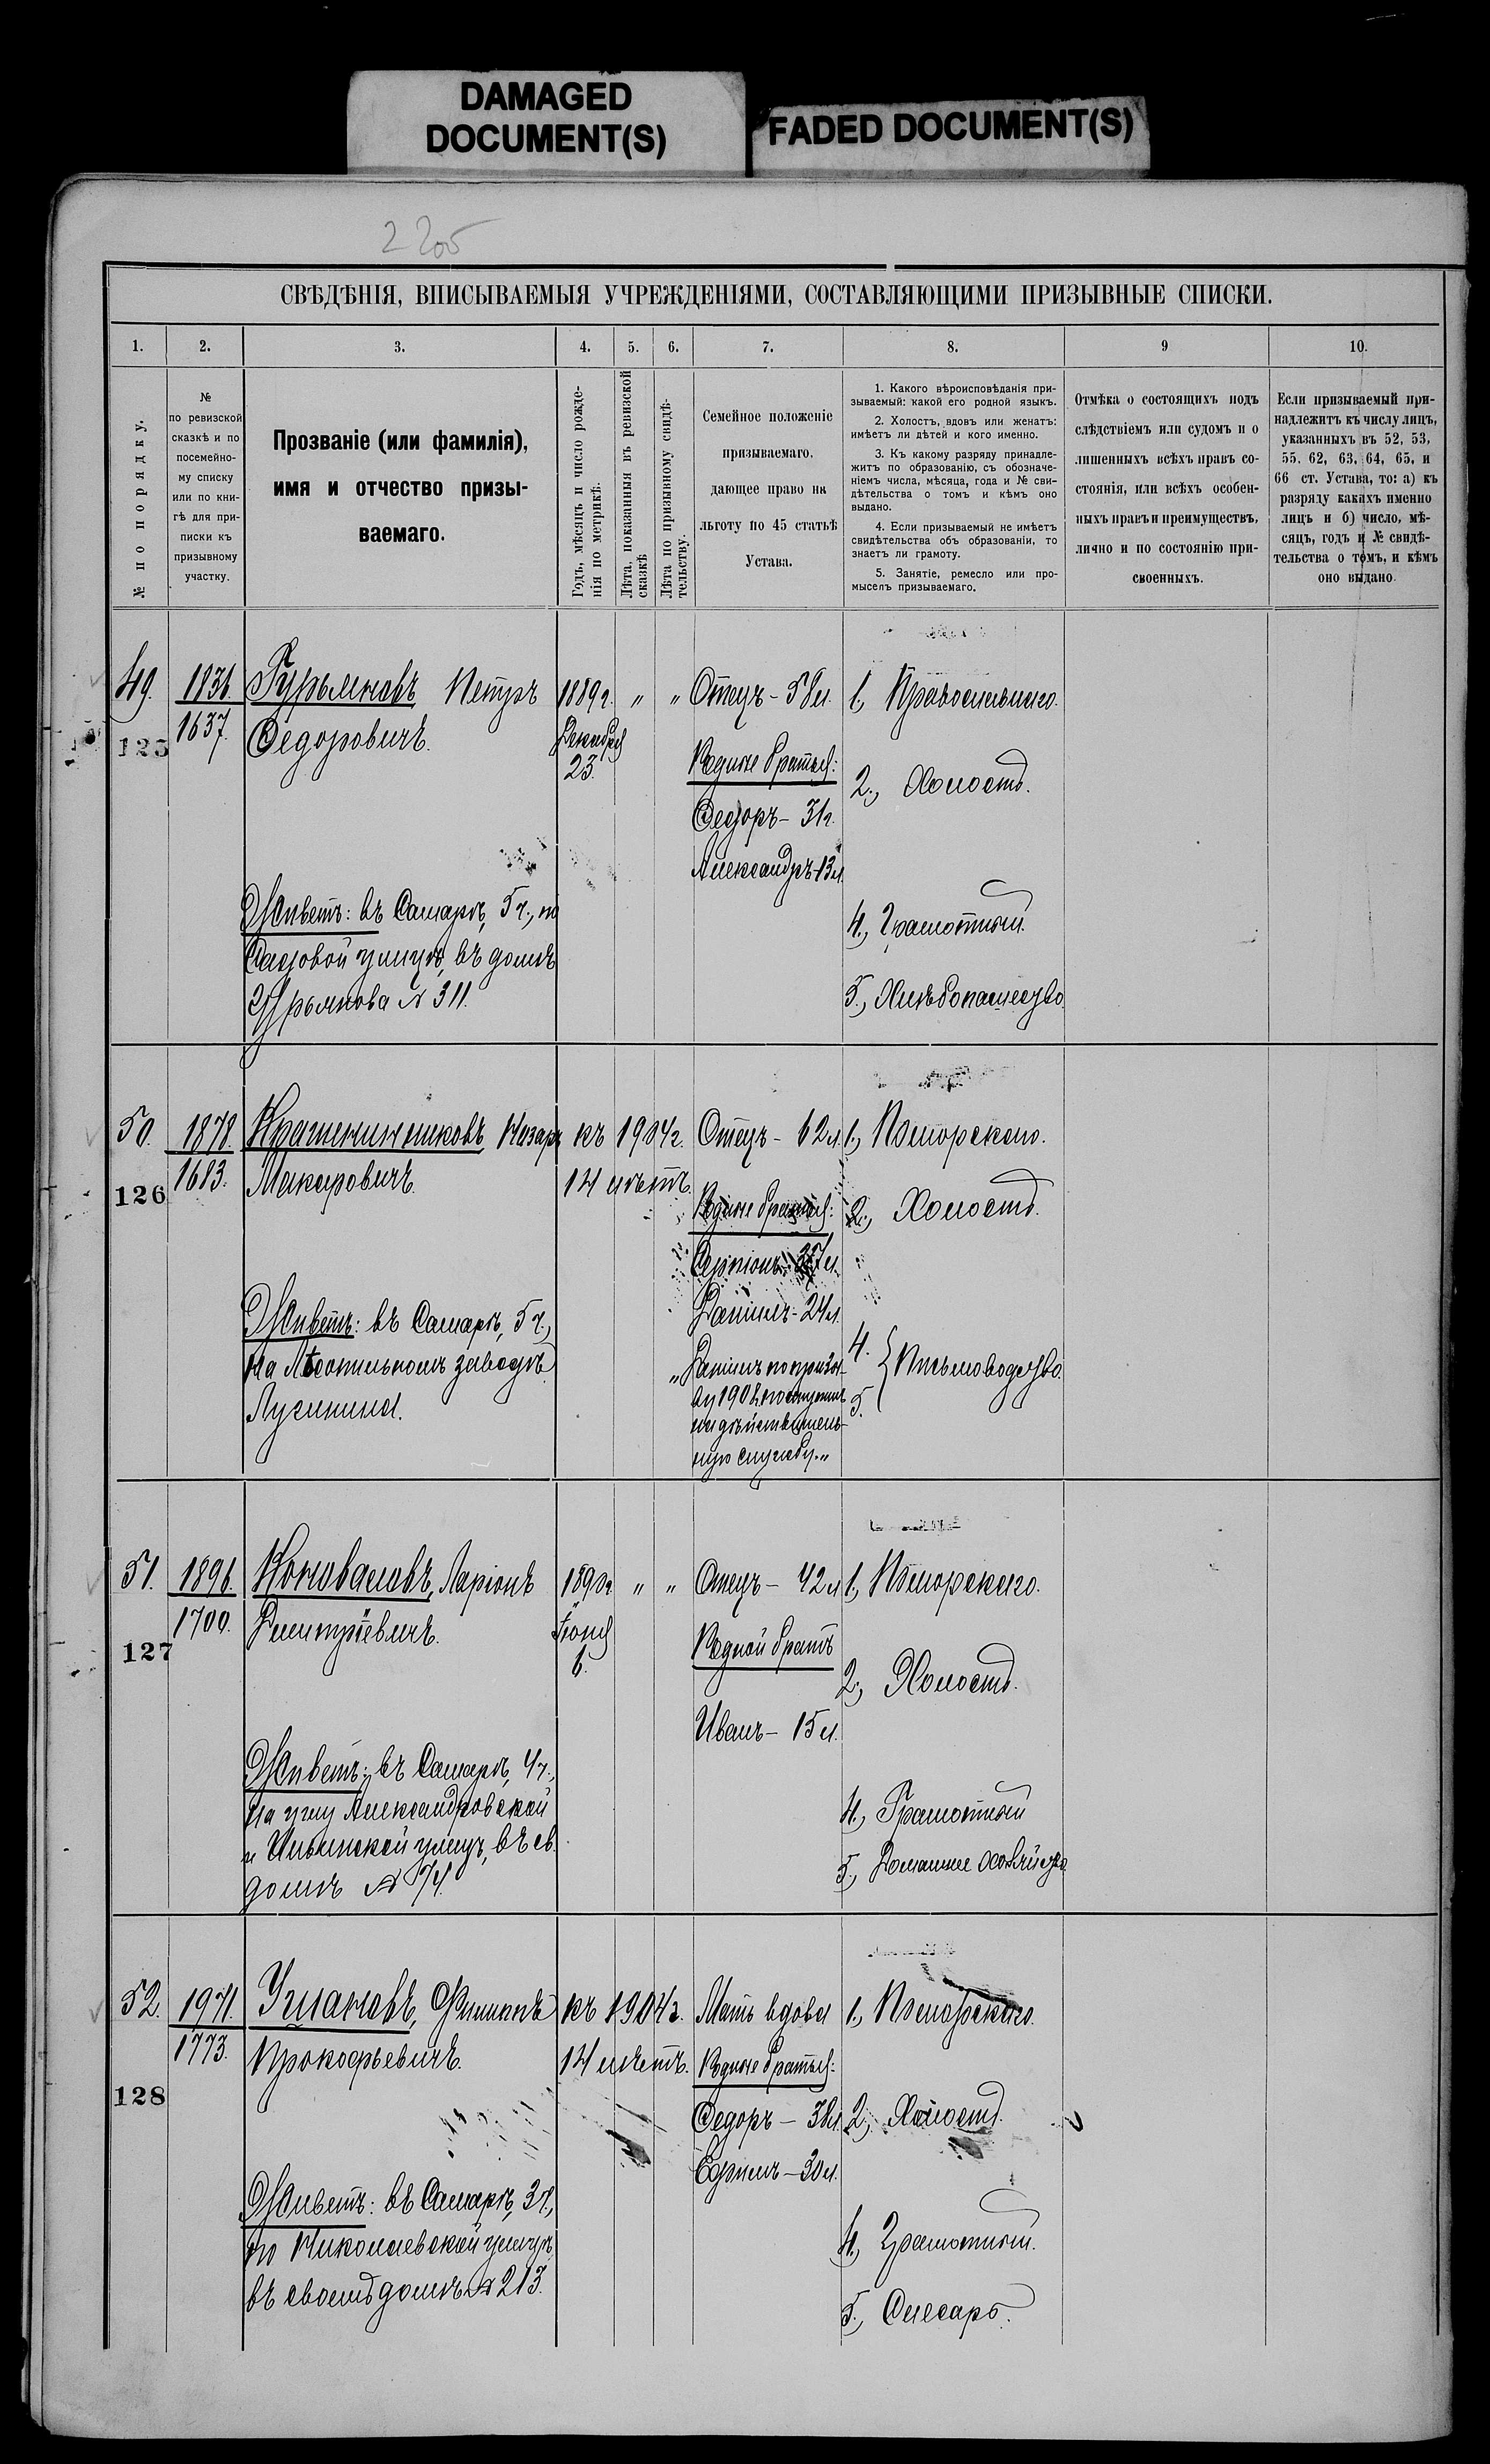 DAMAGED
DOCUMENT(S)
FADED DOCUMENT(S)
2205
СВѢДѢНІЯ, ВПИСЫВАЕМЫЯ УЧРЕЖДЕНІЯМИ, СОСТАВЛЯЮЩИМИ ПРИЗЫВНЫЕ СПИСКИ.
1.
2.
3.
4.
5.
6.
7.
8.
9
10.
№ по порядку.
№
по ревизской
сказкѣ и по
посемейно-
му списку
или по кни-
гѣ для при-
писки къ
призывному
участку.
Прозваніе (или фамилія),
имя и отчество призы-
ваемаго.
Годъ, мѣсяцъ и число рожде-
нія по метрикѣ.
Лѣта, показанныя въ ревизской
сказкѣ
Лѣта по призывному свидѣ-
тельству.
Семейное положеніе
призываемаго,
дающее право на
льготу по 45 статьѣ
Устава.
1. Какого вѣроисповѣданія при-
зываемый: какой его родной языкъ.
2. Холостъ, вдовъ или женатъ:
имѣетъ ли дѣтей и кого именно.
3. Къ какому разряду принадле-
житъ по образованію, съ обозначе-
ніемъ числа, мѣсяца, года и № сви-
дѣтельства о томъ и кѣмъ оно
выдано.
4. Если призываемый не имѣетъ
свидѣтельства объ образованіи, то
знаетъ ли грамоту.
5. Занятіе, ремесло или про-
мыселъ призываемаго.
Отмѣка о состоящихъ подъ
слѣдствіемъ или судомъ и о
лишенныхъ всѣхъ правъ со-
стоянія, или всѣхъ особен-
ныхъ правъ и преимуществъ,
лично и по состоянію при-
своенныхъ.
Если призываемый при-
надлежитъ къ числу лицъ,
указанныхъ въ 52, 53,
55, 62, 63, 64, 65, и
66 ст. Устава, то: а) къ
разряду какихъ именно
лицъ и б) число, мѣ-
сяцъ, годъ и № свидѣ-
тельства о томъ, и кѣмъ
оно выдано.
49.
125
1836.
1637.
Гурьяновъ Петръ
Федоровичъ.
Живетъ: въ Самарѣ, 5 ч., по
Садовой улицѣ, въ домѣ
Гурьянова № 311.
1889 г.
Декабря
23.
„
„
Отецъ - 58 л.
Родные братья:
Федоръ - 31 г.
Александръ - 13 л.
1., Православнаго.
2., Холостъ.
4., Грамотный.
5., Хлѣбопашество
50.
126
1878.
1683.
Крашенинниковъ Назаръ
Макаровичъ.
Живетъ: въ Самарѣ, 5 ч.,
на Лѣсопильномъ заводѣ
къ 1904 г.
14 лѣтъ.
Отецъ - 62 л.
Родные братья:
Серпіонъ - 27 л.
Даніилъ - 24 л.
„Даніилъ по призы-
ву 1908 г. поступилъ
на дѣйствитель-
ную службу.„
1., Поморскаго.
2., Холостъ.
4.
5.
} Письмоводство.
51.
127
1896.
1700.
Коноваловъ, Ларіонъ
Дмитріевичъ.
Живетъ: въ Самарѣ, 4 ч.,
на углу Александровской
и Ильинской улицъ, въ св.
домѣ № 74.
1890 г.
Іюня
6.
„
„
Отецъ - 42 л.
Родной братъ
Иванъ - 15 л.
1., Поморскаго.
2., Холостъ.
4., Грамотный
5., Домашнее хозяйство
52.
128
1971.
1773.
Улановъ, Филиппъ
Прокофьевичъ.
Живетъ: въ Самарѣ, 3 ч.,
по Николаевской улицѣ,
въ своемъ домѣ № 213.
къ 1904 г.
14 лѣтъ.
Мать вдова
Родные братья:
Федоръ - 38 л.
Ефимъ - 30 л.
1., Поморскаго.
2., Холостъ.
4., Грамотный.
5., Слесарь.